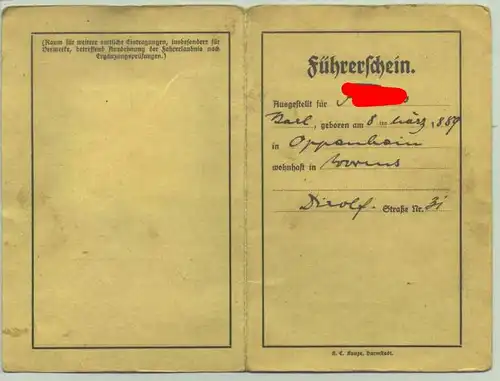 (Raum für weitere amtliche Eintragungen, insbesondere für
Vermerke, betreffend Ausdehnung der Fahrerlaubnis nach
Ergänzungsprüfungen.)
Führerschein.
Ausgestellt für
Karl, geboren am 8ten März 1887
in Oppenheim
wohnhaft in Worms
Dirolf- Straße Nr. 31
K. C. Darmstadt.